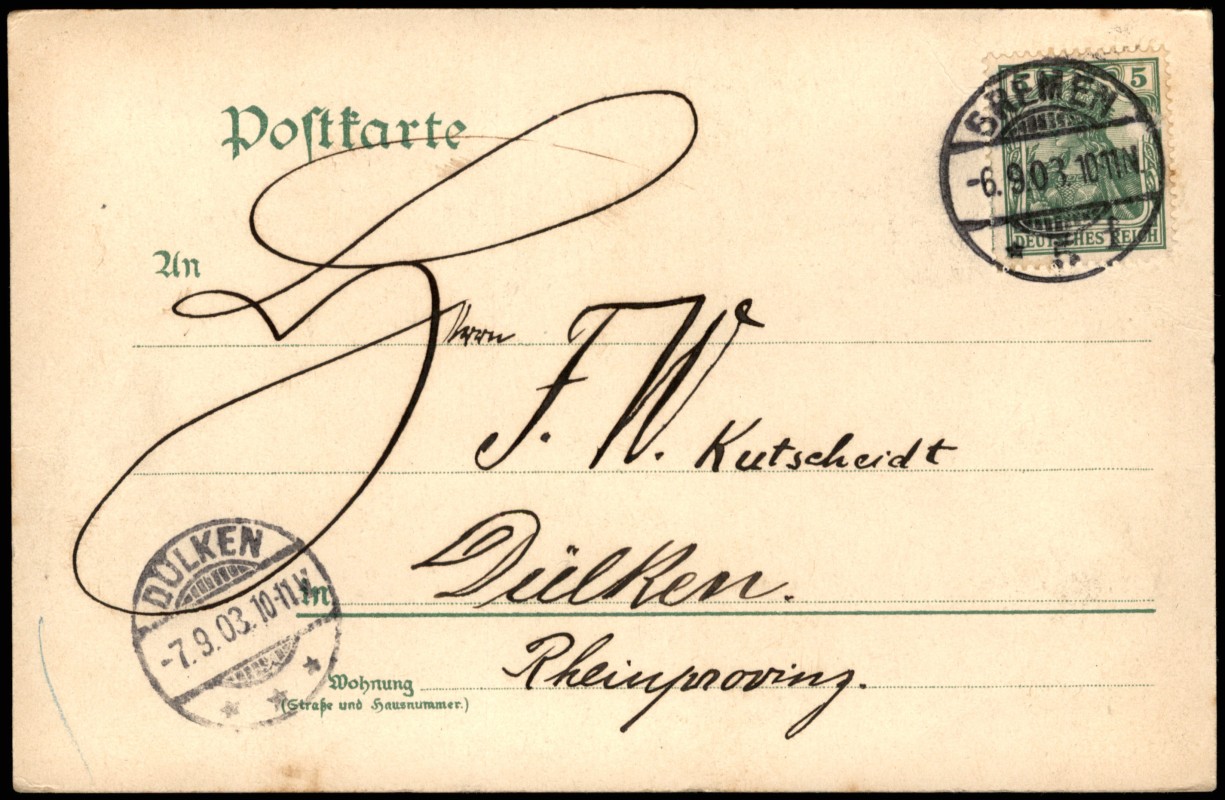 Postkarte
5
BREMEN
-6.9.03. 10-11N.
DEUTSCHES REICH
An
Herrn
F. W. Kutscheidt
DÜLKEN
-7.9.03. 10-11.V.
In
Dülken.
Rheinprovinz.
Wohnung
(Straße und Hausnummer.)